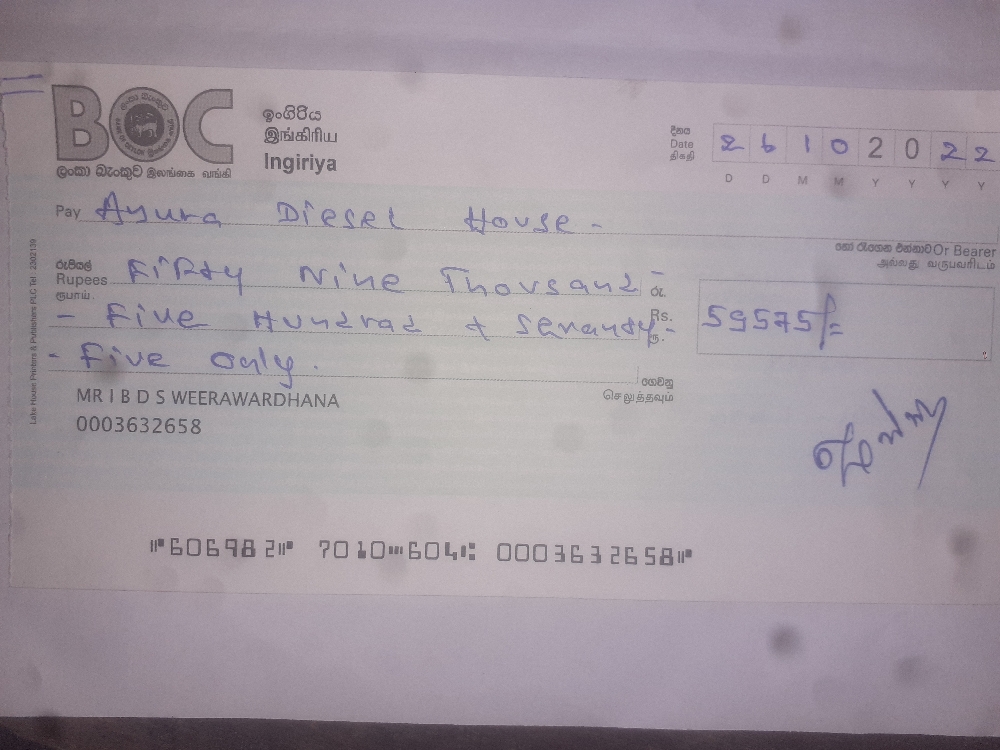 BOC
ලංකා බැංකුව இலங்கை வங்கி
ඉංගිරිය
இங்கிரிய
Ingiriya
දිනය
Date
திகதி
2 6 1 0 2 0 2 2
D D M M Y Y Y Y
Pay Ayura Diesel House -
හෝ රැගෙන එන්නාට Or Bearer
அல்லது வருபவரிடம்
රුපියල්
Rupees Fifty Nine Thousand
ரூபாய்
- Five Hundrad & Sevandy -
- Five Only.
රු.
Rs. 59575/=
ரூ.
ගෙවනු
செலுத்தவும்
MR I B D S WEERAWARDHANA
0003632658
Lake House Printers & Publishers PLC Tel : 2302139
⑈606982⑈ 7010⑉604⑆ 0003632658⑈